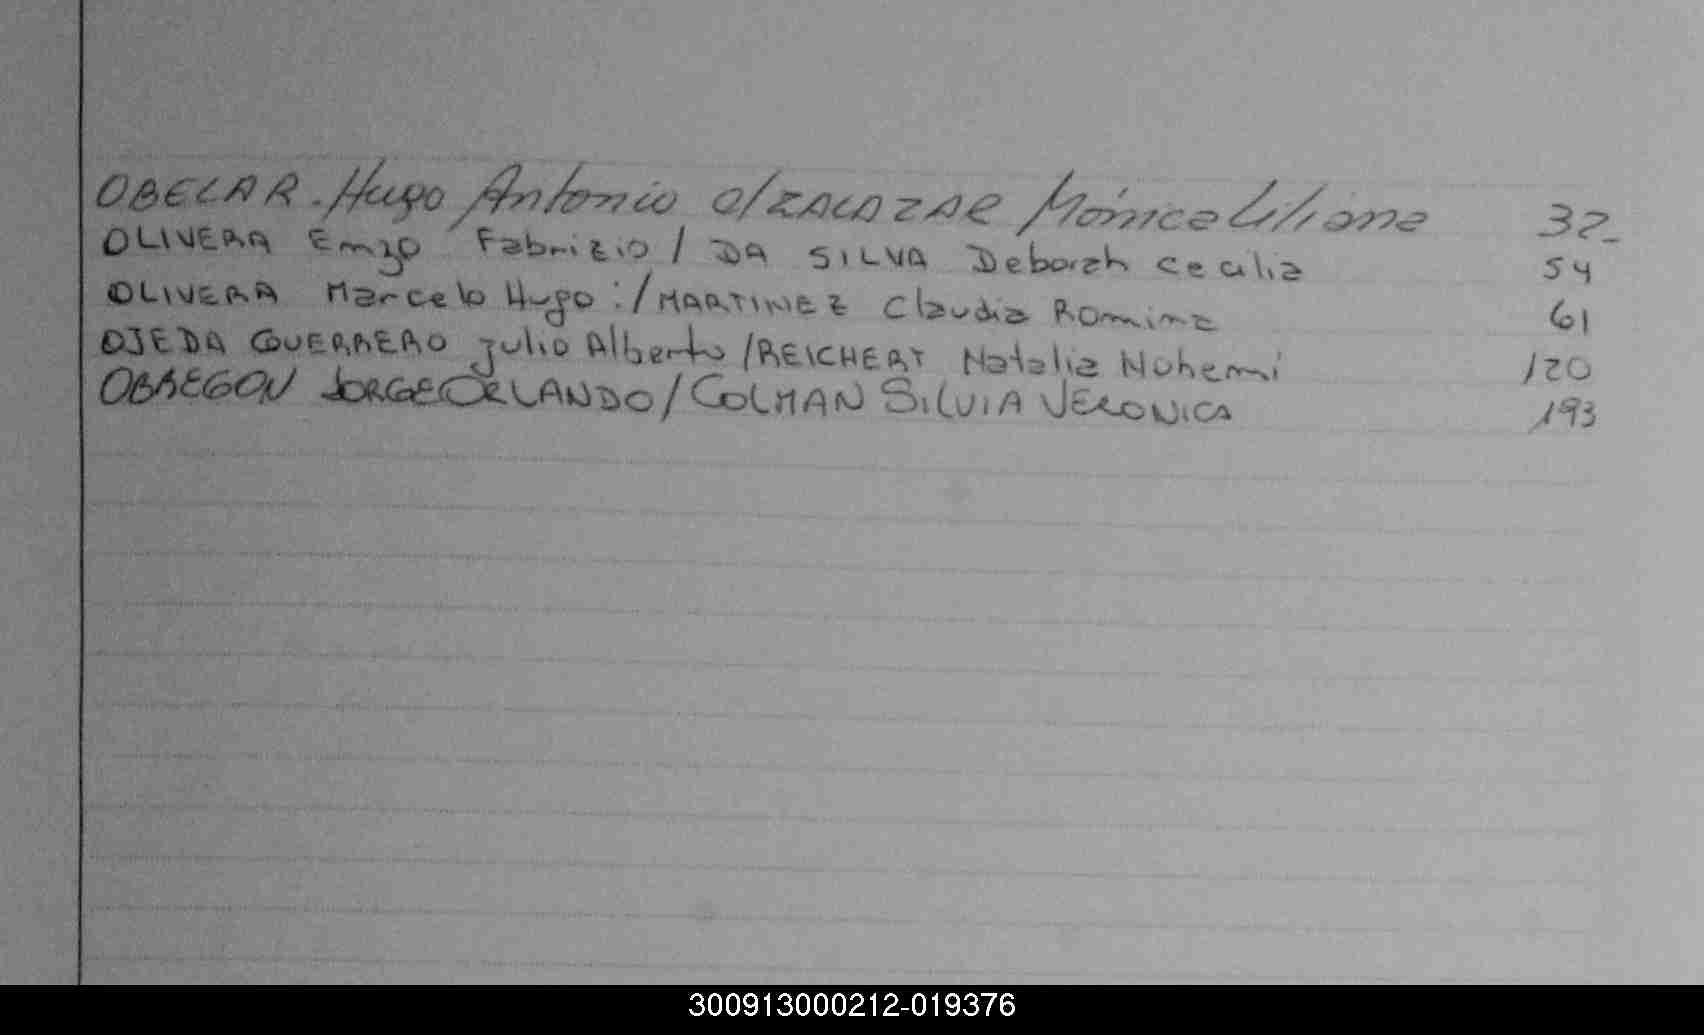 OBELAR. Hugo Antonio c/ZALAZAR Mónica Liliana 32-
OLIVERA Emzo Fabrizio / DA SILVA Deborah Cecilia 54
OLIVERA Marcelo Hugo :/ MARTINEZ Claudia Romina 61
OJEDA GUERRERO Julio Alberto / REICHERT Natalia Nohemi 120
OBREGON JORGE ORLANDO / COLMAN SILVIA VERONICA 193
300913000212-019376